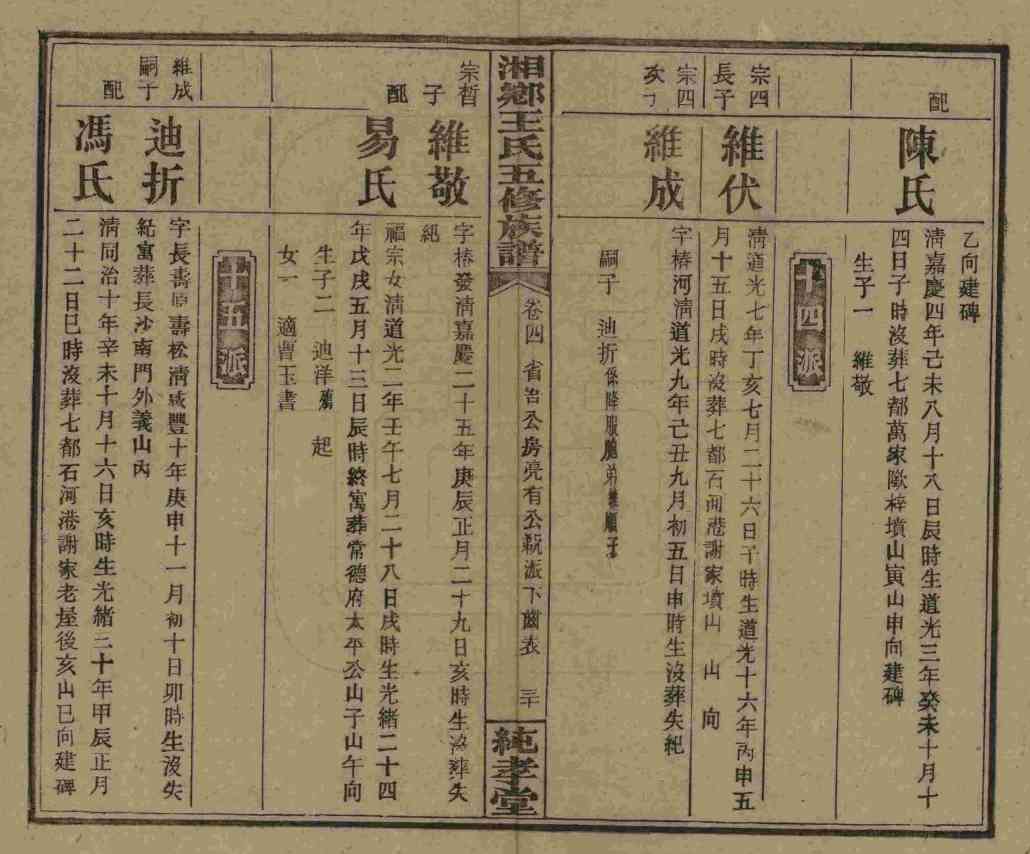 乙向建碑
配
陳氏
清嘉慶四年己未八月十八日辰時生道光三年癸未十月十
四日子時沒葬七都萬家歐梓墳山寅山申向建碑
生子一 維敬
十四派
宗四
長子
維伏
清道光七年丁亥七月二十六日子時生道光十六年丙申五
月十五日戌時沒葬七都石河港謝家墳山 山 向
宗四
次子
維成
字椿河清道光九年己丑九月初五日申時生沒葬失紀
嗣子 迪折係降服胞弟維順子
湘鄉王氏五修族譜
卷四 省吾公房亮有公派下齒表 三十
純孝堂
宗哲
子
維敬
字椿發清嘉慶二十五年庚辰正月二十九日亥時生沒葬失
紀
配
易氏
福宗女清道光二年壬午七月二十八日戌時生光緒二十四
年戊戌五月十三日辰時終寓葬常德府太平公山子山午向
生子二 迪洋 起
女一 適曹玉書
十五派
維成
嗣子
迪折
字長壽原壽松清咸豐十年庚申十一月初十日卯時生沒失
紀寓葬長沙南門外義山內
配
馮氏
清同治十年辛未十月十六日亥時生光緒三十年甲辰正月
二十二日巳時沒葬七都石河港謝家老屋後亥山巳向建碑